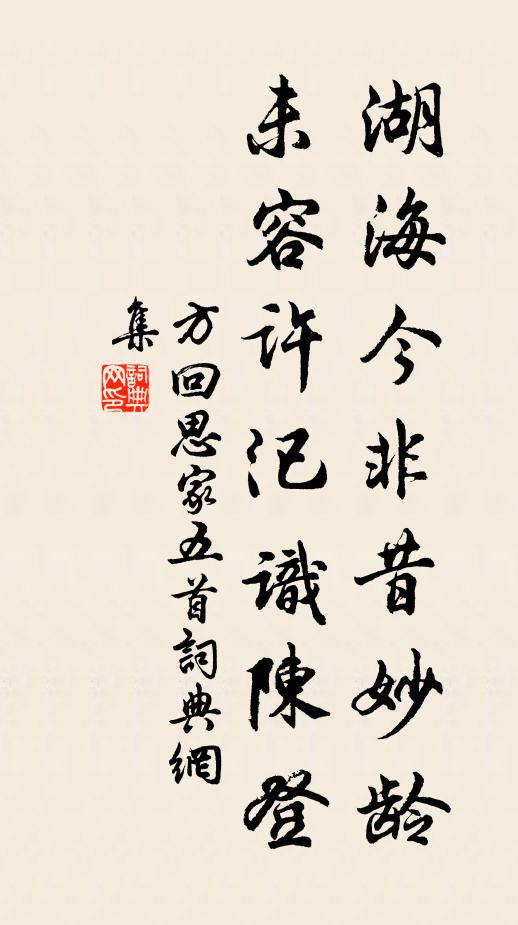 湖海今非昔妙龄
未容许汜識陳登
方回思家五首詞典網
集
詞典网印